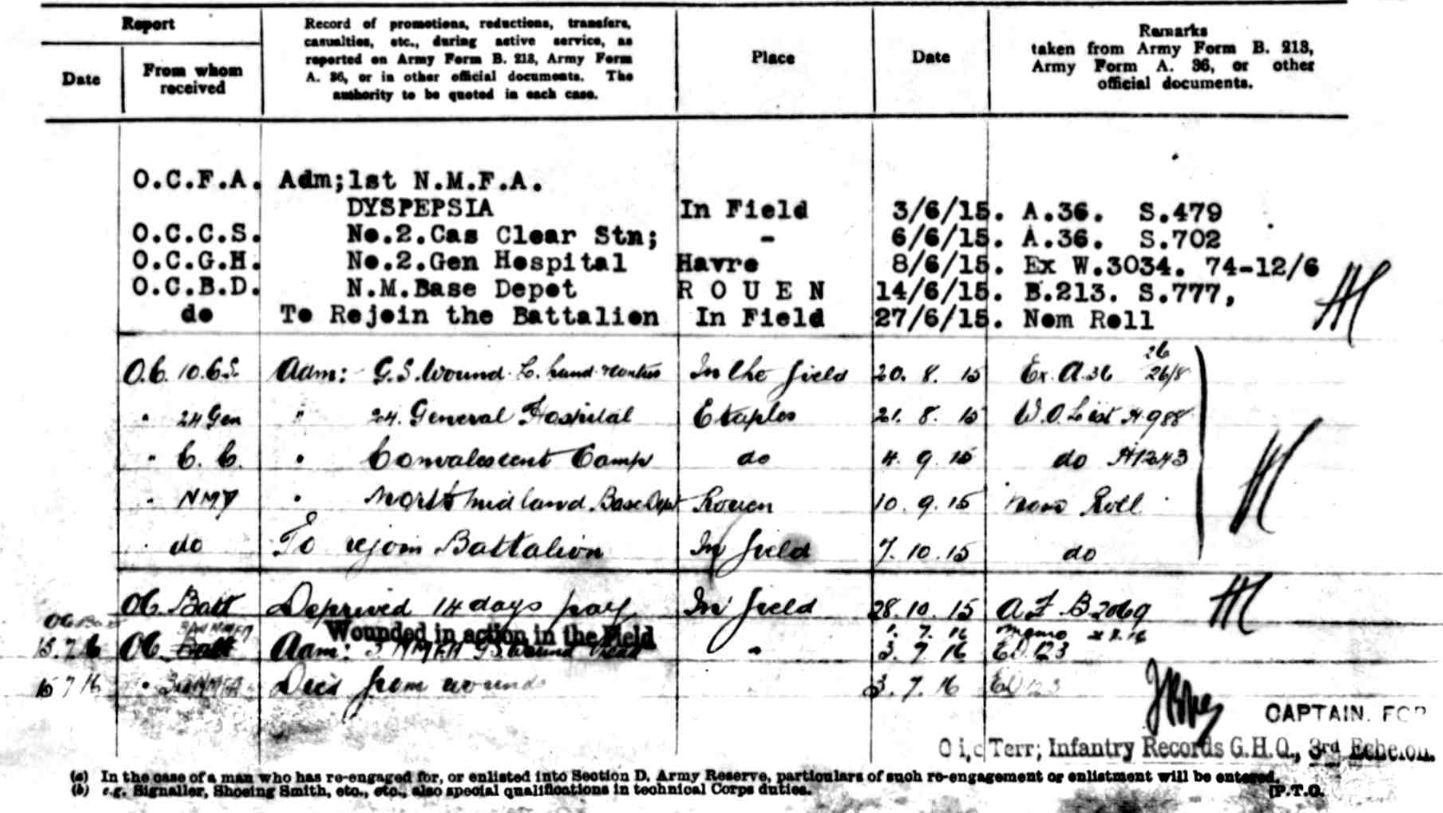 Report
Date
From whom received
Record of promotions, reductions, transfers, casualties, etc., during active service, as reported on Army Form B. 213, Army Form A. 36, or in other official documents. The authority to be quoted in each case.
Place
Date
Remarks taken from Army Form B. 213, Army Form A. 36, or other official documents.
O.C.F.A. Adm;1st N.M.F.A.
DYSPEPSIA In Field 3/6/15. A.36. S.479
O.C.C.S. No.2.Cas Clear Stn; - 6/6/15. A.36. S.702
O.C.G.H. No.2.Gen Hospital Havre 8/6/15. Ex W.3034. 74-12/6
O.C.B.D. N.M.Base Depot ROUEN 14/6/15. B.213. S.777,
do To Rejoin the Battalion In Field 27/6/15. Nom Roll
O.C. 10.C.S. Adm: G.S. Wound L. hand In the field 20.8.15 Ex. A.36 26/8
" 24 Gen " 24. General Hospital Etaples 21.8.15 W.O. List H 988
" C.C. " Convalescent Camp do 4.9.15 do H1243
" NMD " North Midland Base Dept Rouen 10.9.15 Nom Roll
" do To rejoin Battalion In field 7.10.15 do
OC Batt Deprived 14 days pay In field 28.10.15 A.F. B2069
Wounded in action in the Field 1.7.16 Memo
13.7.16 OC Adm: 3 NMFA GS Wound Head " 3.7.16 ED 123
15 7 16 " 3rd NMFA Died from wounds 3.7.16 ED 123
CAPTAIN. FOR
O i/c Terr; Infantry Records G.H.Q., 3rd Echelon.
(a) In the case of a man who has re-engaged for, or enlisted into Section D. Army Reserve, particulars of such re-engagement or enlistment will be entered.
(b) e.g. Signaller, Shoeing Smith, etc., etc., also special qualifications in technical Corps duties.
[P.T.O.